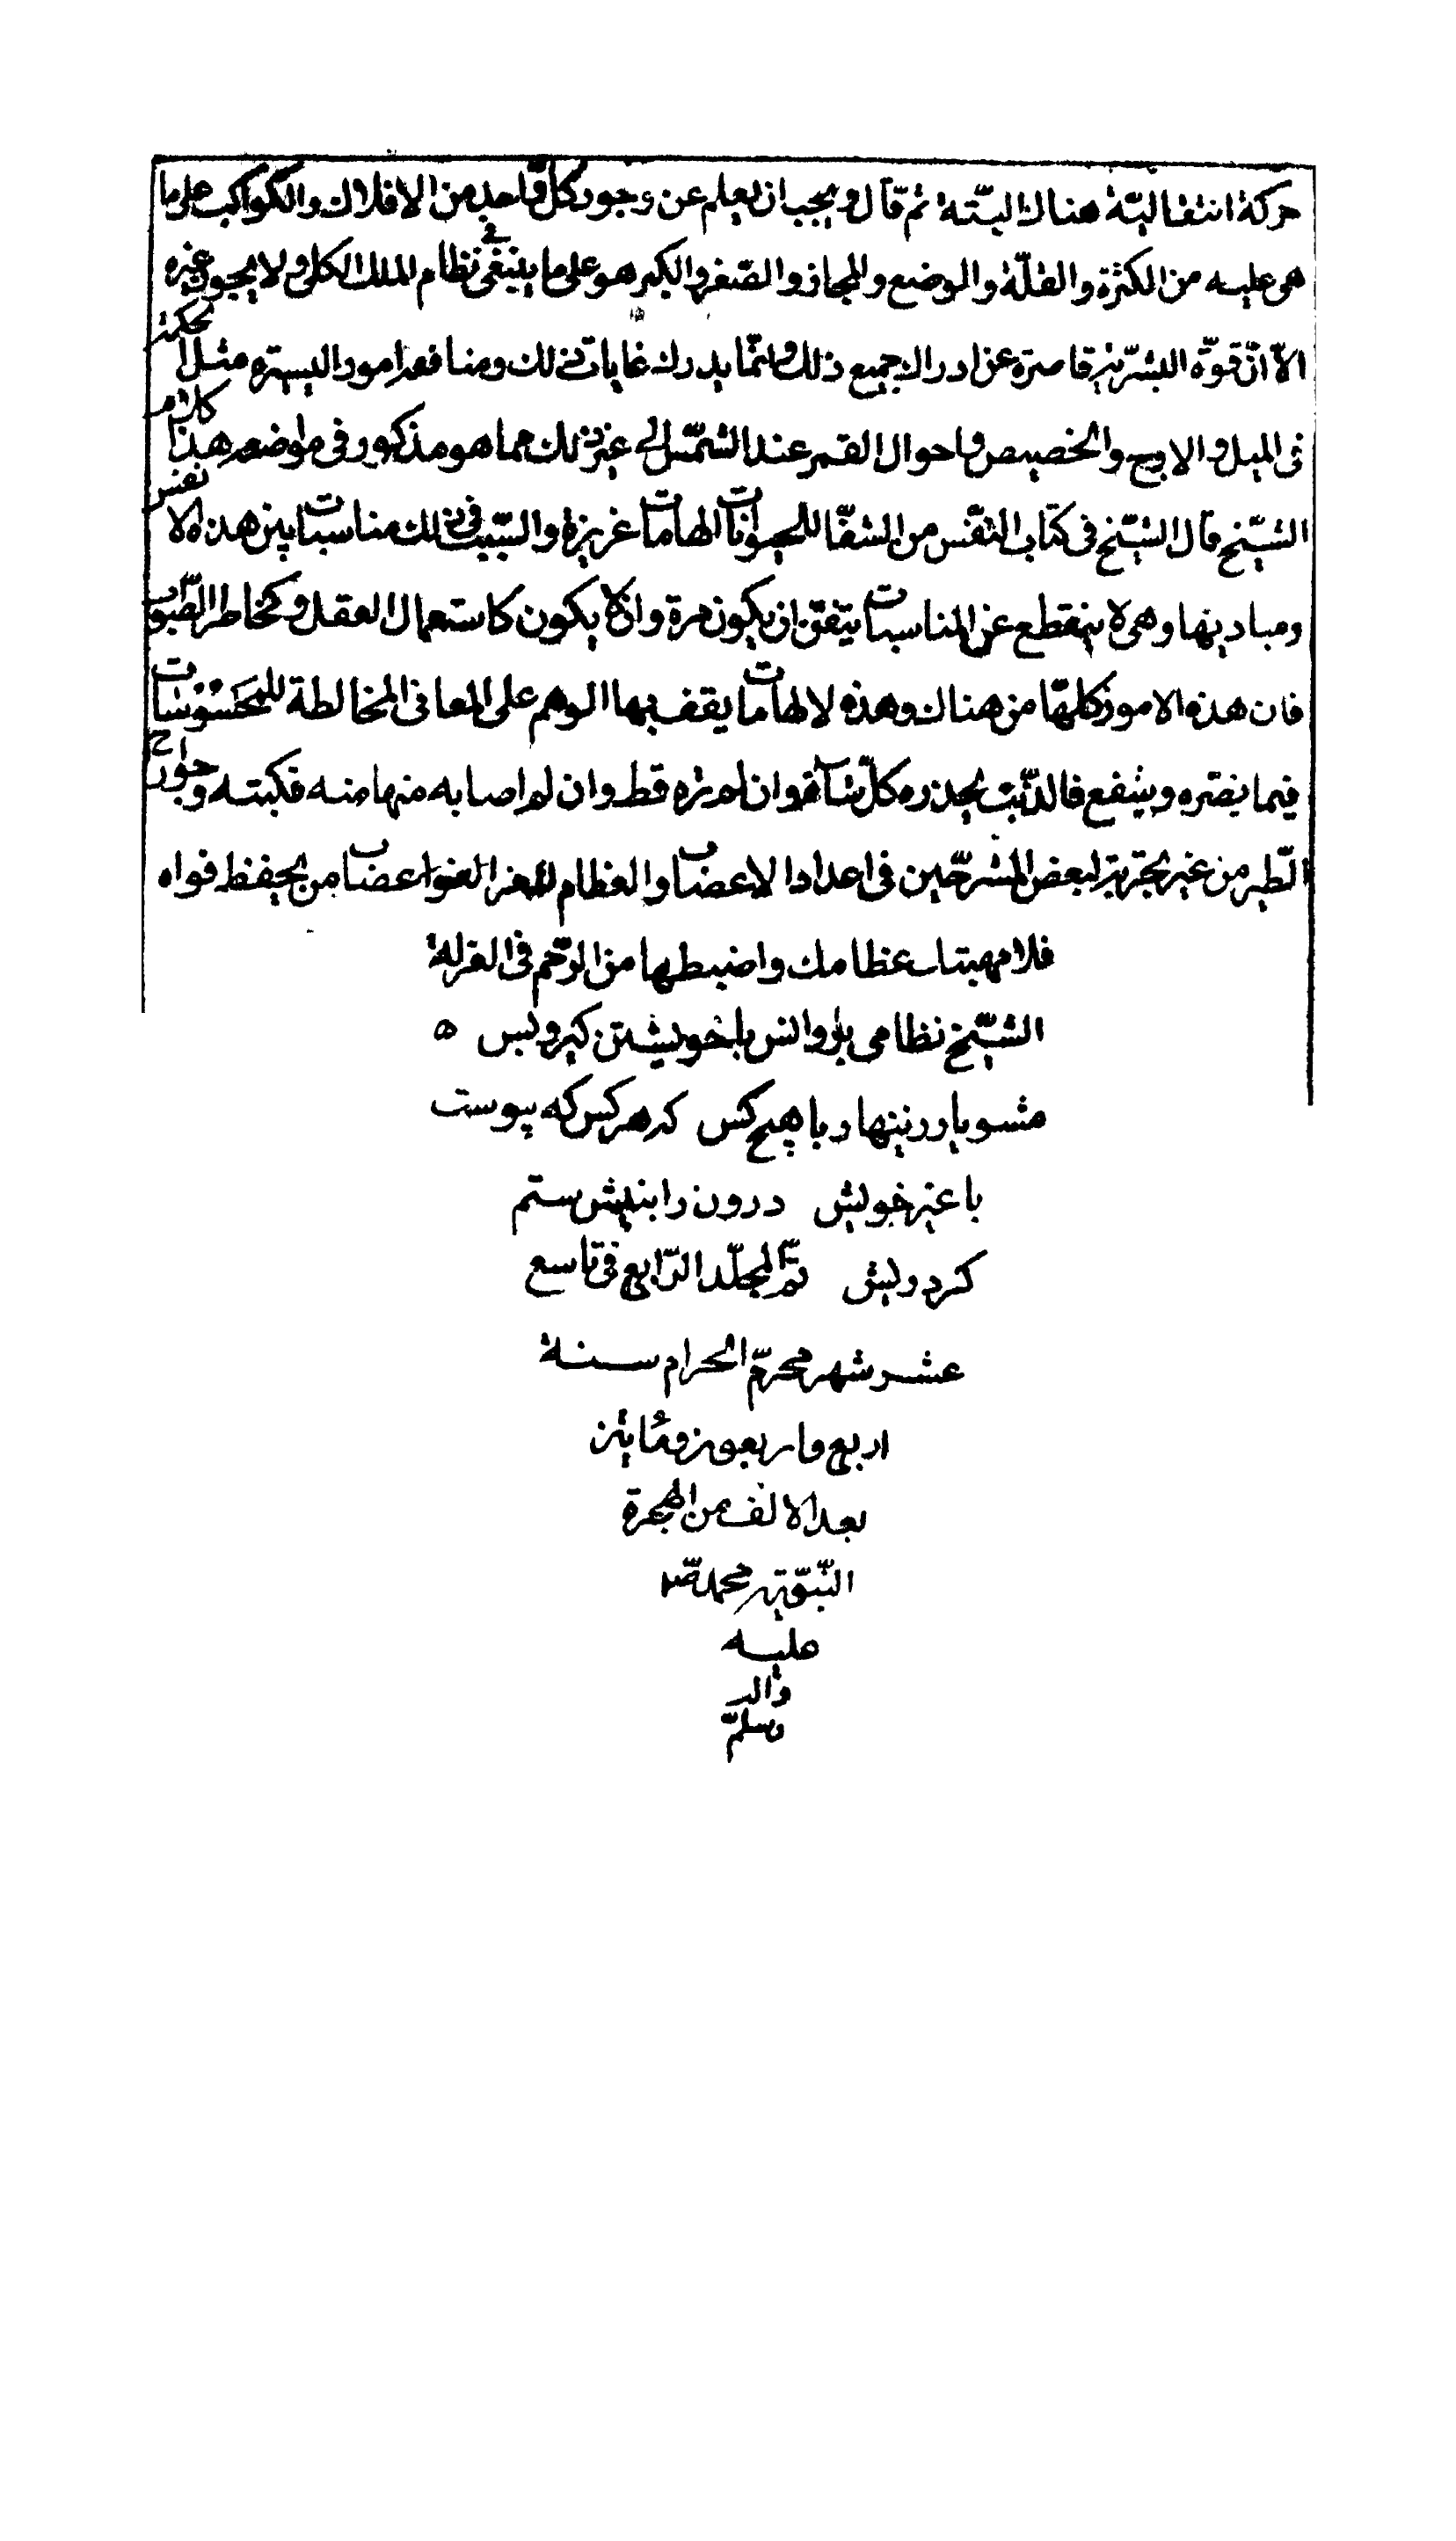 حركة انتقالية هناك البتة ثم قال ويجب ان يعلم عن وجود كل واحد من الافلاك والكواكب على ما
هى عليه من الكثرة والقلة والموضع والمجاز والصغر والكبر هو على ما ينبغى فى نظام الملك الكل ولا يجوز غيره
الا ان قوة البشرية قاصرة عن ادراك جميع ذلك وانما يدرك غايات ذلك ومنافعه امور اليسيره مثل الحكمة
فى الميل والاوج والحضيض واحوال القمر عند الشمس الى غير ذلك مما هو مذكور فى مواضعه هذا كلام
الشيخ قال الشيخ فى كتاب النفس من الشفا للحيوانات الهامات غريزة والسبب فى ذلك مناسبات بين هذه الانفس
ومباديها وهى لا ينقطع عن المناسبات يتفق ان يكون مرة وان لا يكون كاستعمال العقل وكخاطر الصواب
فان هذه الامور كلها من هناك وهذه لالهامات ما يقف بها الوهم على المعانى المخالطة للمحسوسات
فيما يضره وينفع فالذئب يحذره كل شاة وان لم تره قط وان لم اصابه منها منه فكبته وجوارح
الطير من غير تجربة لبعض المشرحين فى اعداد الاعضاب والعظام اعضاب من يحفظ قواه
فلا عظامك واضبطها من الرحم فى الغزلة
الشيخ نظامى با خويشتن كير وبس ه
مشو يار زينهار با هيچ كس كه هر كس كه پيوست
با غير خويش درون را بنيش ستم
كرد ريش تم المجلد الرابع فى تاسع
عشر شهر محرم الحرام سنة
اربع واربعون ومأتين
بعد الالف من الهجرة
النبوية محمد ص
عليه
واله
وسلم